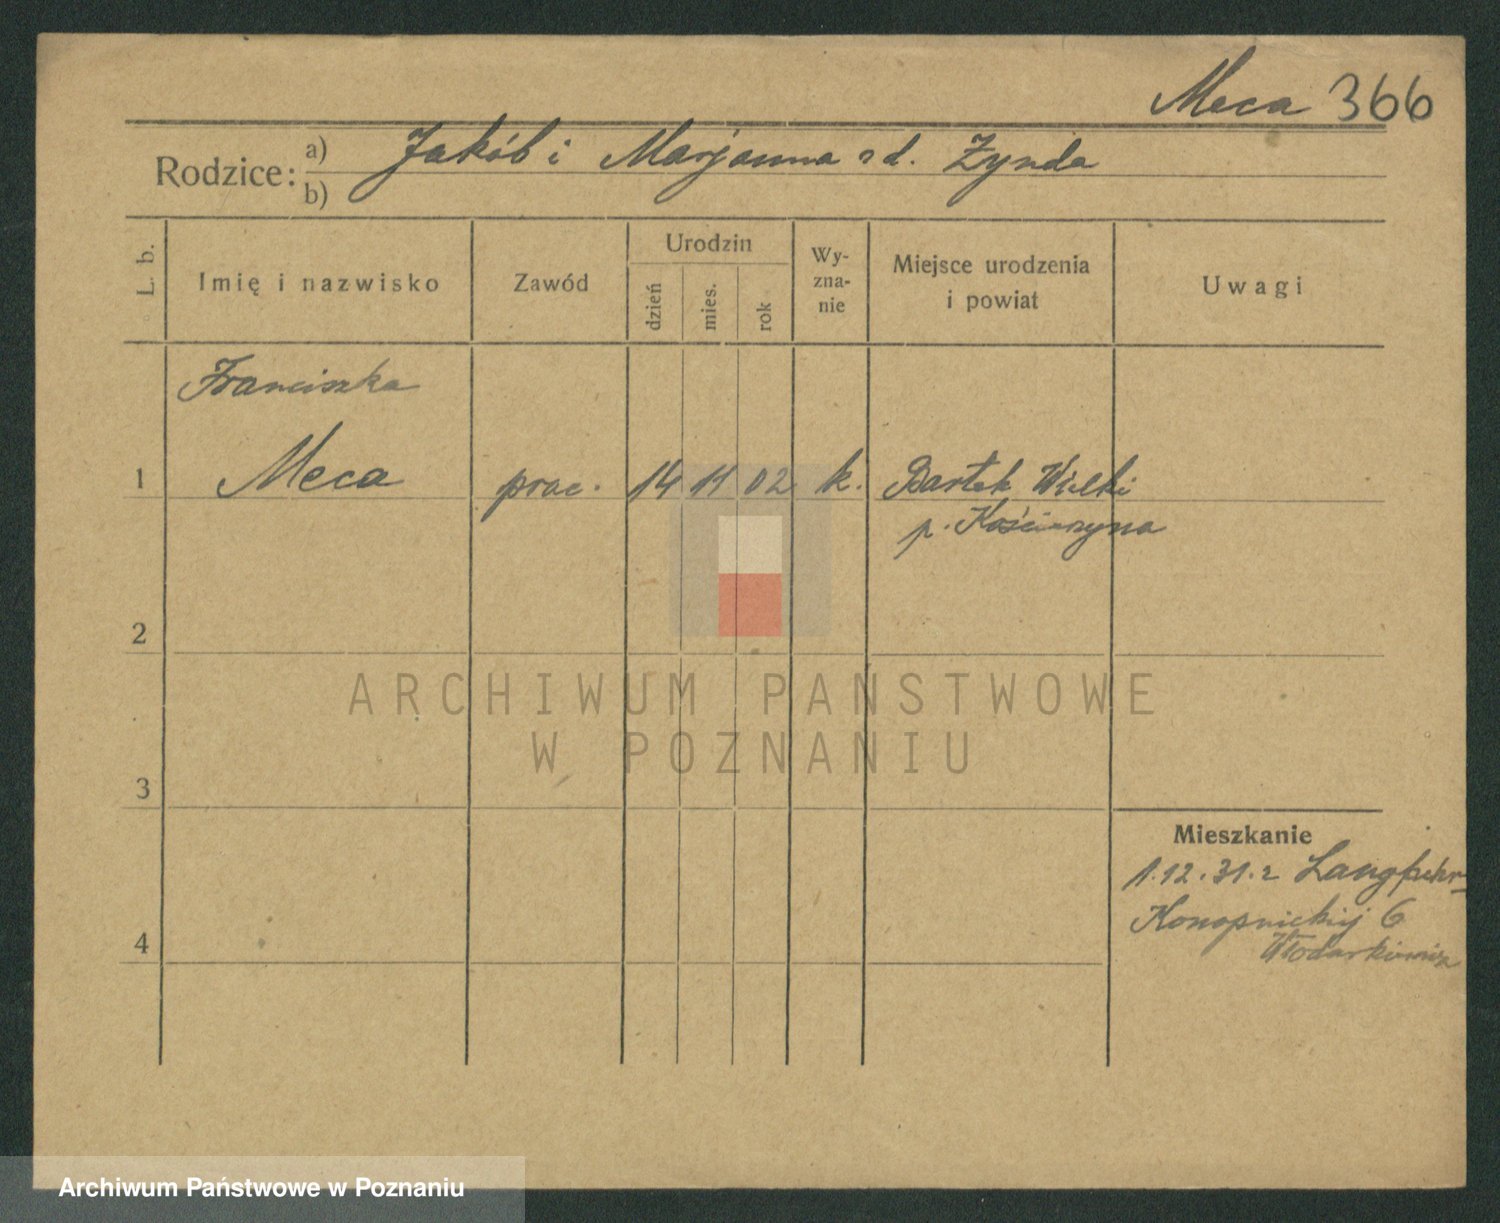 Meca 366
Rodzice: a) Jakób i Marjanna zd. Zynda
b)
L. b. Imię i nazwisko Zawód Urodzin dzień mies. rok Wy-zna-nie Miejsce urodzenia i powiat Uwagi
Franciszka
1 Meca prac. 14 11 02 k. Bartek Wielki
p. Kościerzyna
2
ARCHIWUM PAŃSTWOWE
W POZNANIU
3
Mieszkanie
1.12.31. z
Konopnickij 6
4
Archiwum Państwowe w Poznaniu